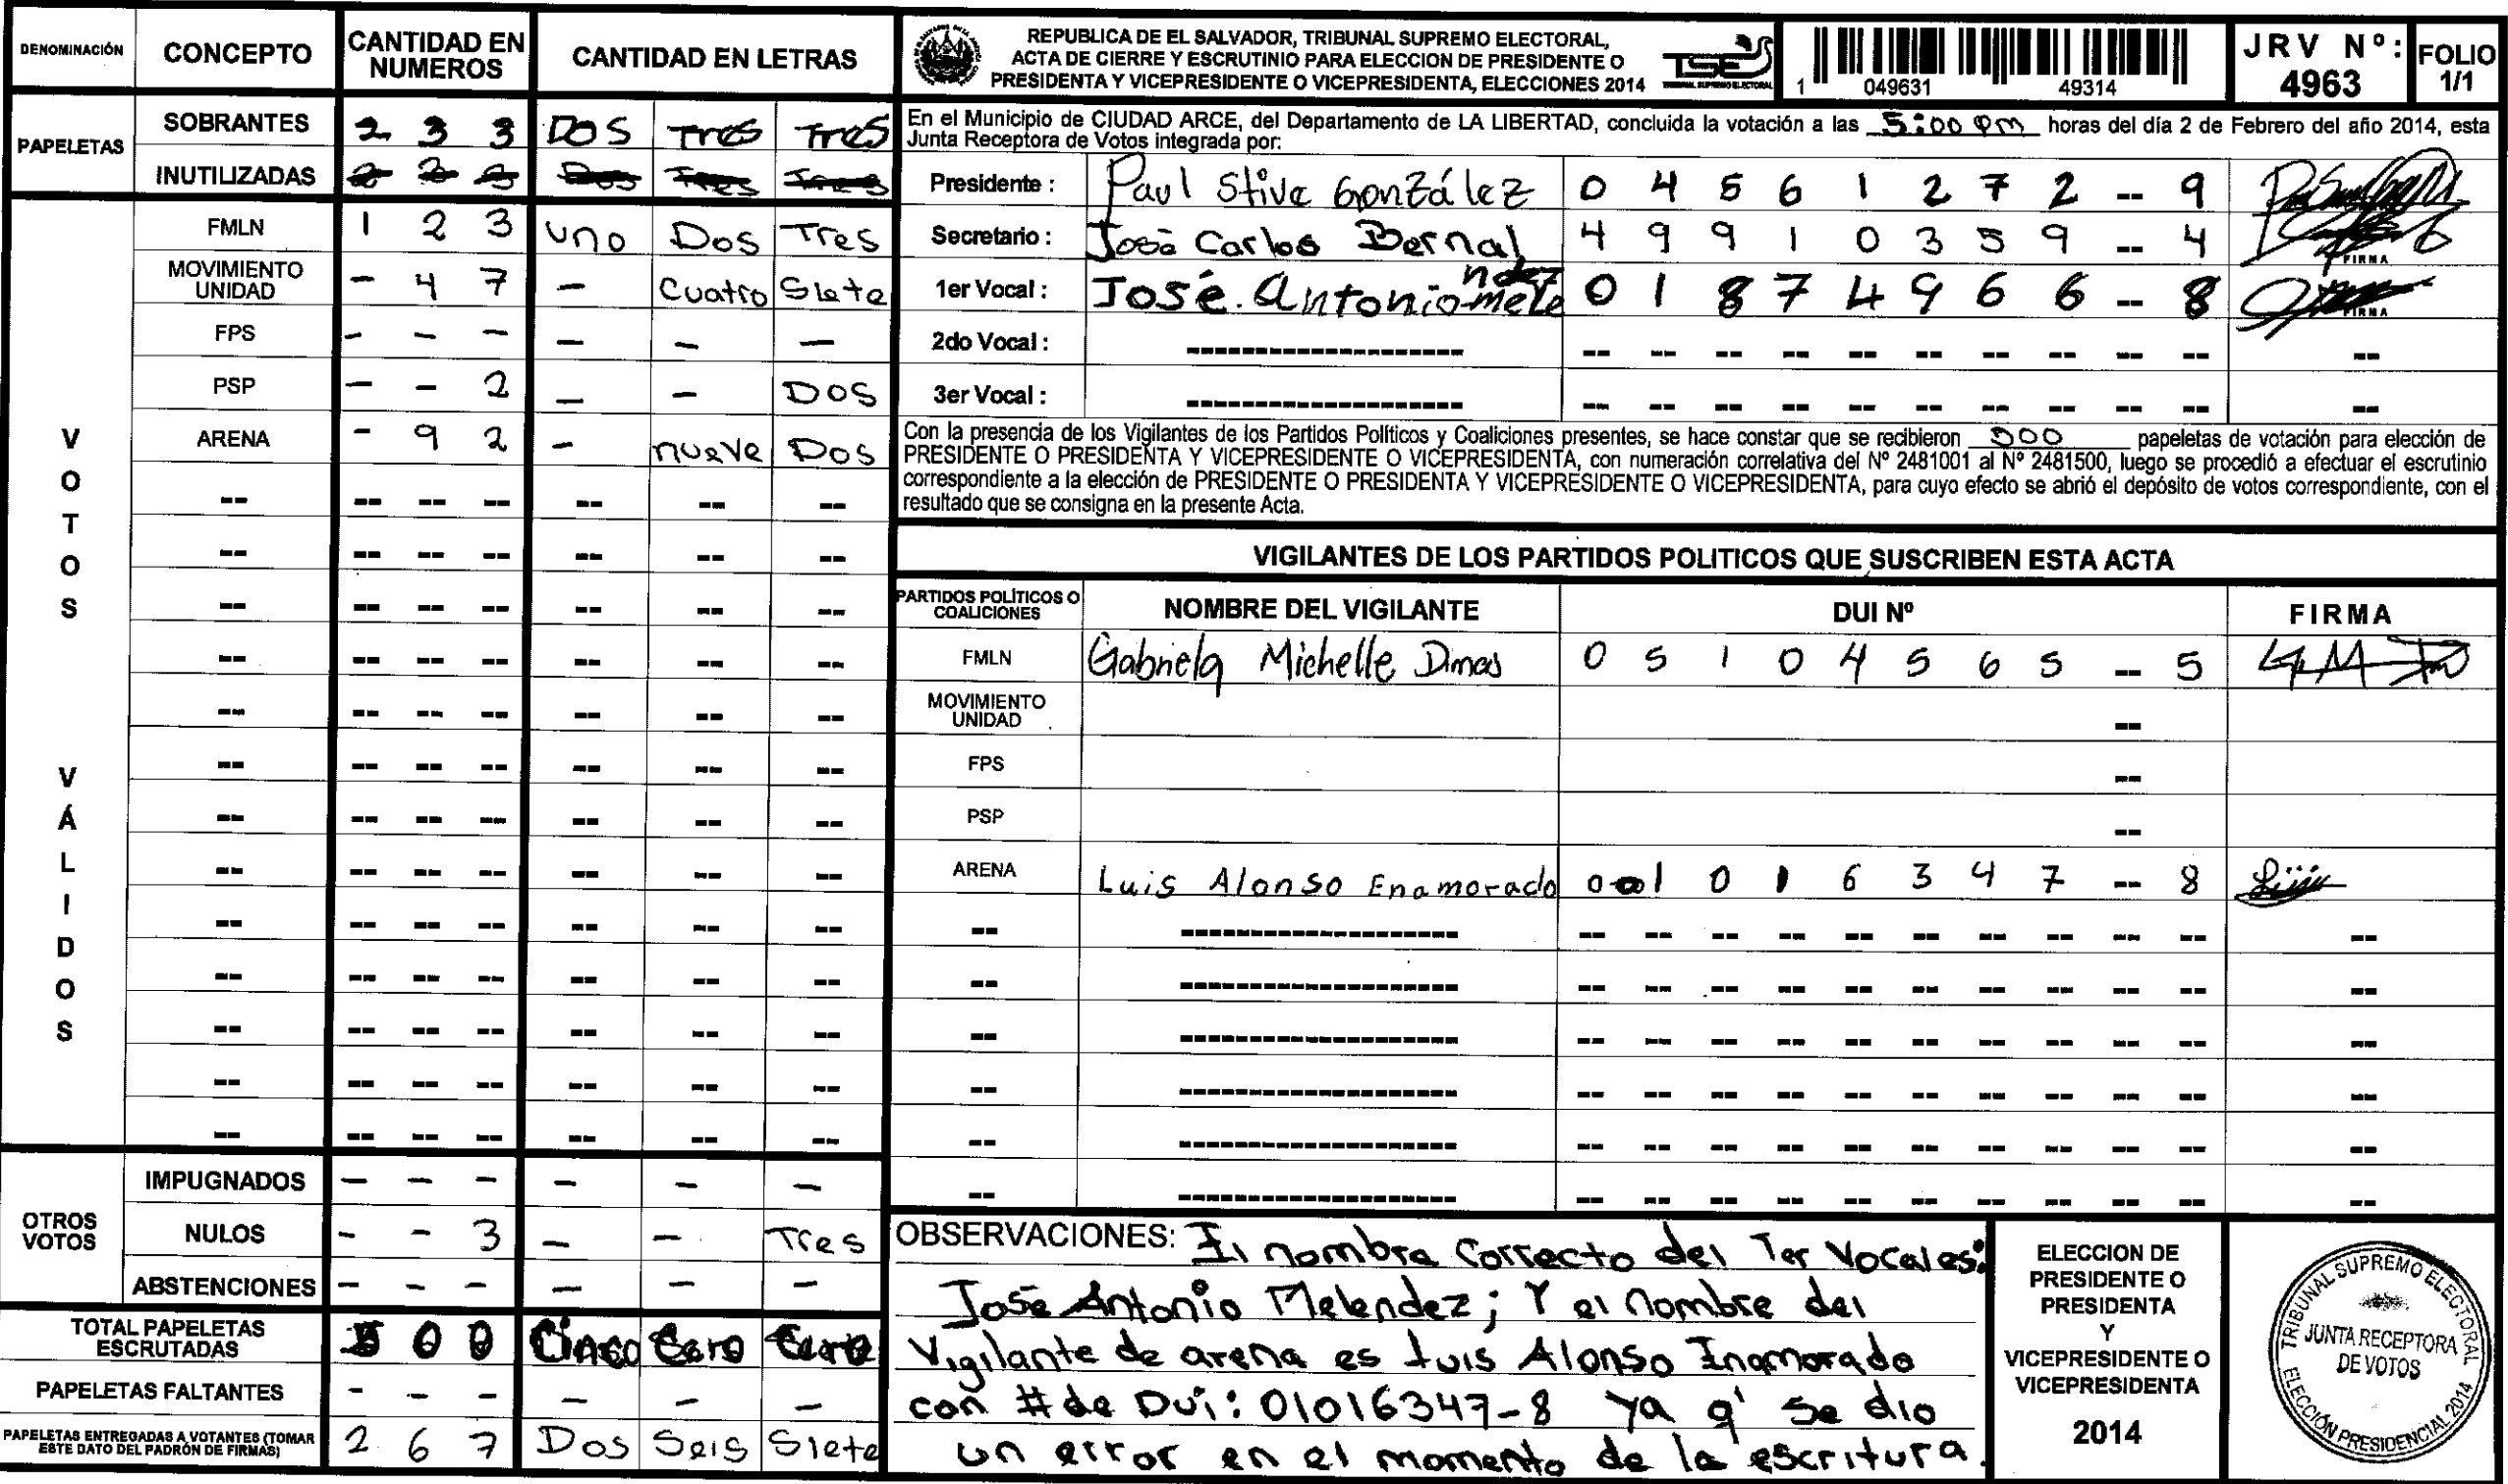 DENOMINACIÓN CONCEPTO CANTIDAD EN NUMEROS CANTIDAD EN LETRAS
PAPELETAS
SOBRANTES 2 3 3 DOS Tres Tres
INUTILIZADAS
VOTOS VÁLIDOS
FMLN 1 2 3 uno Dos Tres
MOVIMIENTO UNIDAD - 4 7 - Cuatro Siete
FPS - - - - - -
PSP - - 2 - - DOS
ARENA - 9 2 - nueve Dos
OTROS VOTOS
IMPUGNADOS - - - - - -
NULOS - - 3 - - Tres
ABSTENCIONES - - - - - -
TOTAL PAPELETAS ESCRUTADAS 5 0 0 Cinco Cero Cero
PAPELETAS FALTANTES - - - - - -
PAPELETAS ENTREGADAS A VOTANTES (TOMAR ESTE DATO DEL PADRÓN DE FIRMAS) 2 6 7 Dos Seis Siete
REPUBLICA DE EL SALVADOR, TRIBUNAL SUPREMO ELECTORAL,
ACTA DE CIERRE Y ESCRUTINIO PARA ELECCION DE PRESIDENTE O
PRESIDENTA Y VICEPRESIDENTE O VICEPRESIDENTA, ELECCIONES 2014
TSE
TRIBUNAL SUPREMO ELECTORAL
1 049631 49314
JRV Nº: 4963
FOLIO 1/1
En el Municipio de CIUDAD ARCE, del Departamento de LA LIBERTAD, concluida la votación a las 5:00 pm horas del día 2 de Febrero del año 2014, esta
Junta Receptora de Votos integrada por:
Presidente : Paul Stive González 0 4 5 6 1 2 7 2 -- 9
Secretario : José Carlos Bernal 4 9 9 1 0 3 5 9 -- 4 FIRMA
1er Vocal : José Antonio 0 1 8 7 4 9 6 6 -- 8 FIRMA
2do Vocal : -- -- -- -- -- -- -- -- -- -- --
3er Vocal : -- -- -- -- -- -- -- -- -- -- --
Con la presencia de los Vigilantes de los Partidos Políticos y Coaliciones presentes, se hace constar que se recibieron 500 papeletas de votación para elección de
PRESIDENTE O PRESIDENTA Y VICEPRESIDENTE O VICEPRESIDENTA, con numeración correlativa del Nº 2481001 al Nº 2481500, luego se procedió a efectuar el escrutinio
correspondiente a la elección de PRESIDENTE O PRESIDENTA Y VICEPRESIDENTE O VICEPRESIDENTA, para cuyo efecto se abrió el depósito de votos correspondiente, con el
resultado que se consigna en la presente Acta.
VIGILANTES DE LOS PARTIDOS POLITICOS QUE SUSCRIBEN ESTA ACTA
PARTIDOS POLÍTICOS O COALICIONES NOMBRE DEL VIGILANTE DUI Nº FIRMA
FMLN Gabriela Michelle Dimas 0 5 1 0 4 5 6 5 -- 5
MOVIMIENTO UNIDAD --
FPS --
PSP --
ARENA Luis Alonso Enamorado 0 1 0 1 6 3 4 7 -- 8
OBSERVACIONES: El nombre Correcto del 1er Vocal es:
José Antonio Melendez; Y el nombre del
Vigilante de arena es Luis Alonso Enamorado
con # de Dui: 01016347-8 ya q' se dio
un error en el momento de la escritura.
ELECCION DE
PRESIDENTE O
PRESIDENTA
Y
VICEPRESIDENTE O
VICEPRESIDENTA
2014
TRIBUNAL SUPREMO ELECTORAL
JUNTA RECEPTORA
DE VOTOS
ELECCIÓN PRESIDENCIAL 2014